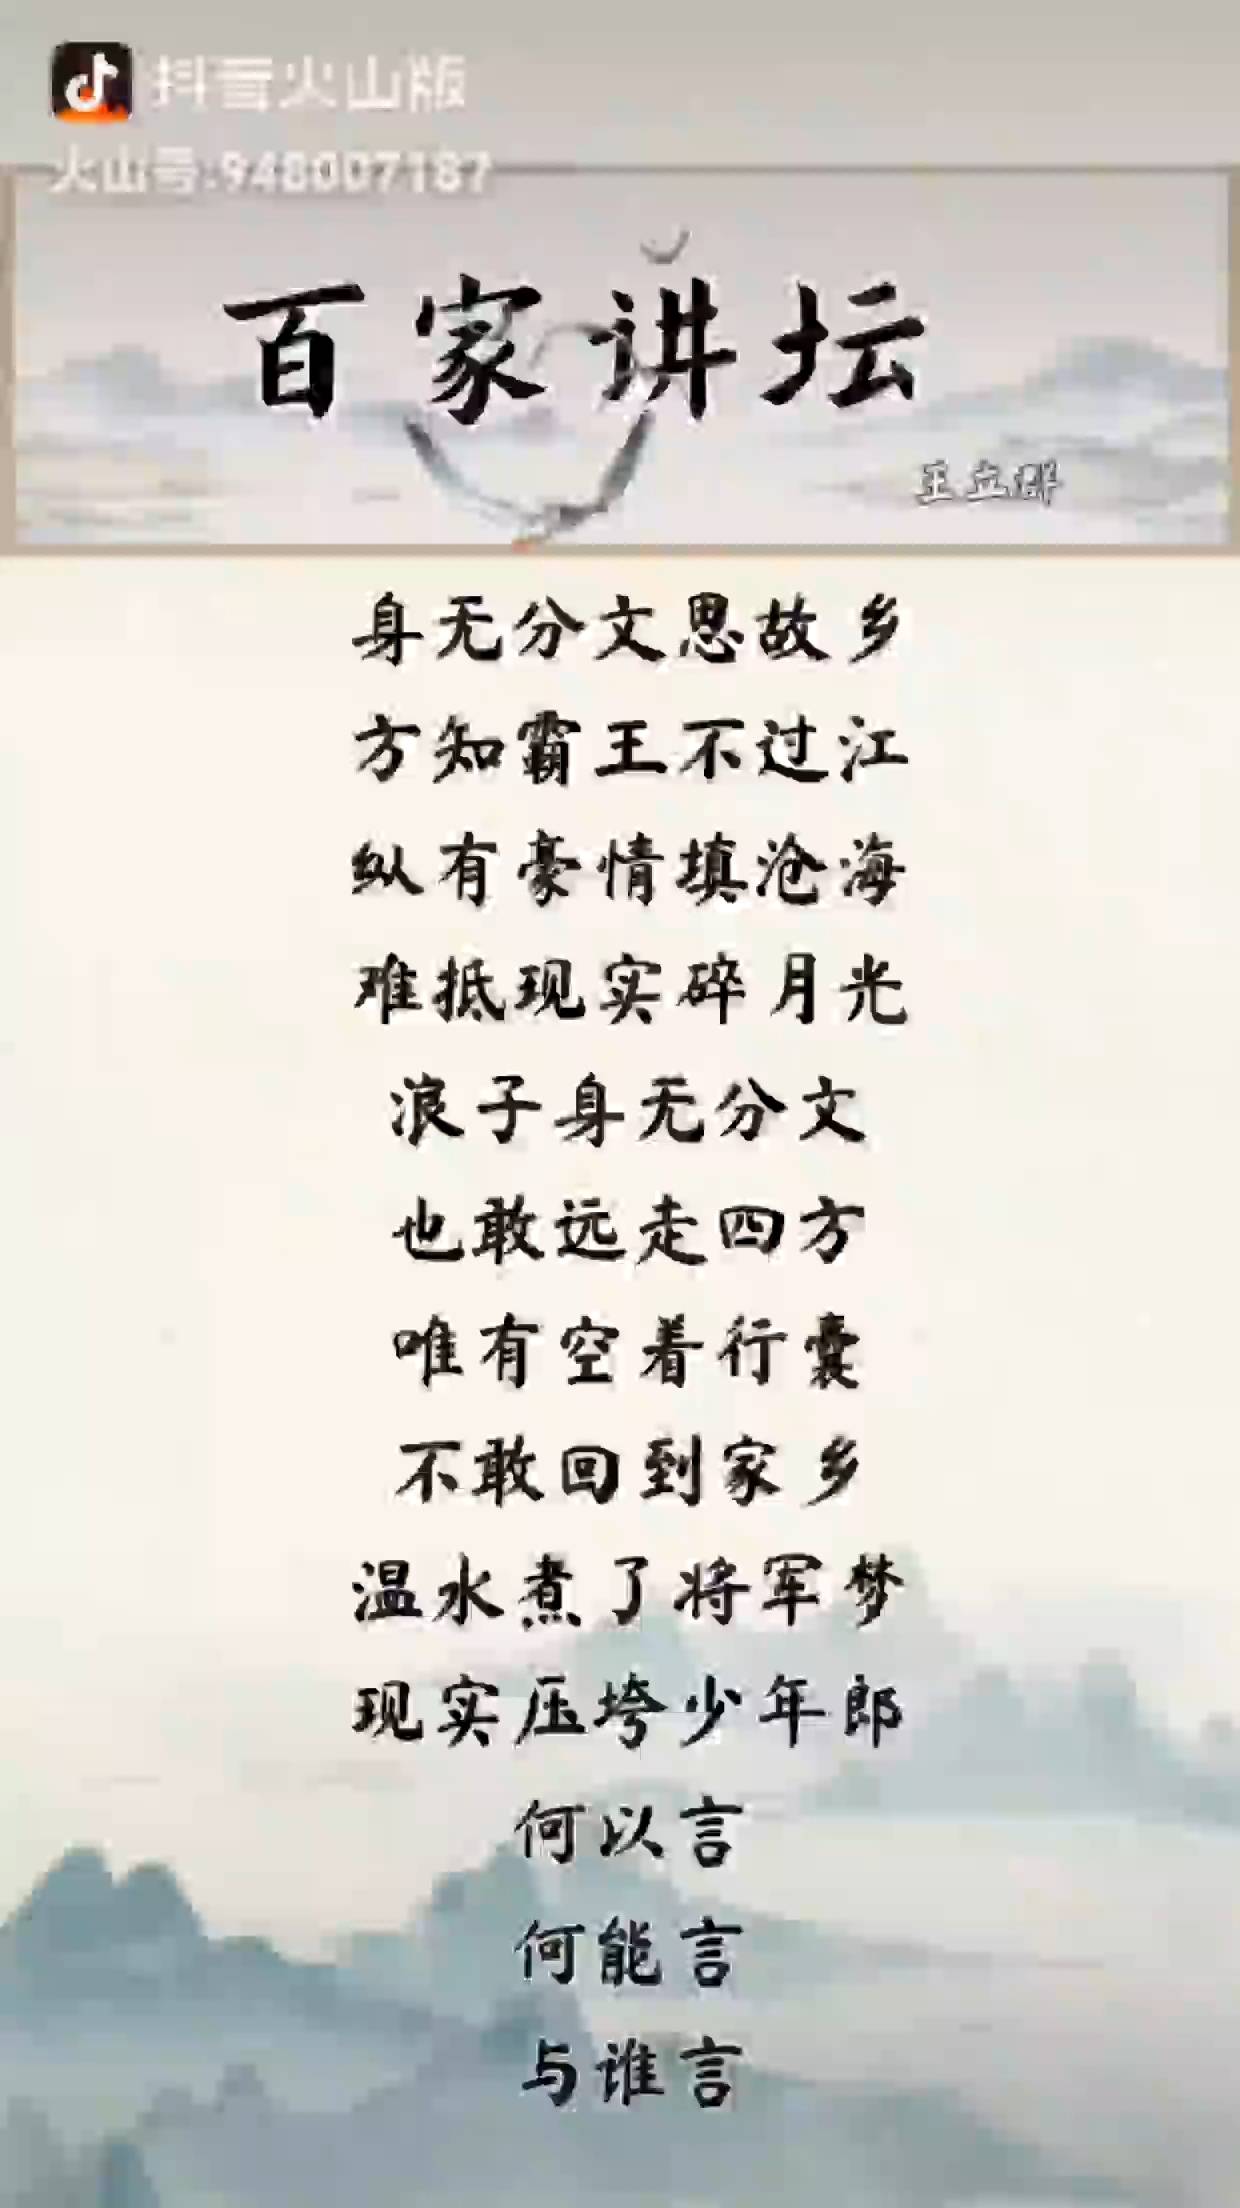 抖音火山版
火山号:948007187
百家讲坛
王立群
身无分文思故乡
方知霸王不过江
纵有豪情填沧海
难抵现实碎月光
浪子身无分文
也敢远走四方
唯有空着行囊
不敢回到家乡
温水煮了将军梦
现实压垮少年郎
何以言
何能言
与谁言